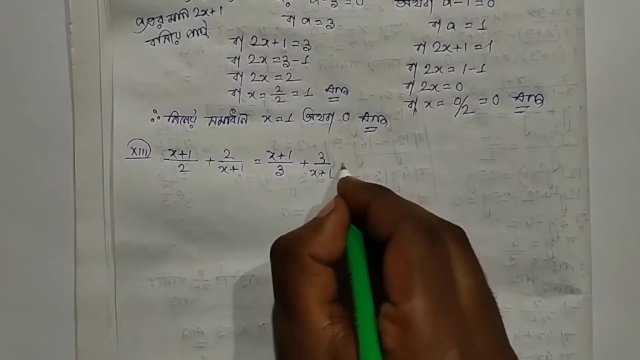 a-3=0 অথবা a-1=0
এবার মান 2x+1 বা a=3 বা a=1
বসিয়ে পাই বা 2x+1=3 বা 2x+1=1
বা 2x=3-1 বা 2x=1-1
বা 2x=2 বা 2x=0
বা x=2/2=1 Ans বা x=0/2=0 Ans
∴ নির্ণেয় সমাধান x=1 অথবা 0 Ans
XIII (x+1)/2 + 2/(x+1) = (x+1)/3 + 3/(x+1)